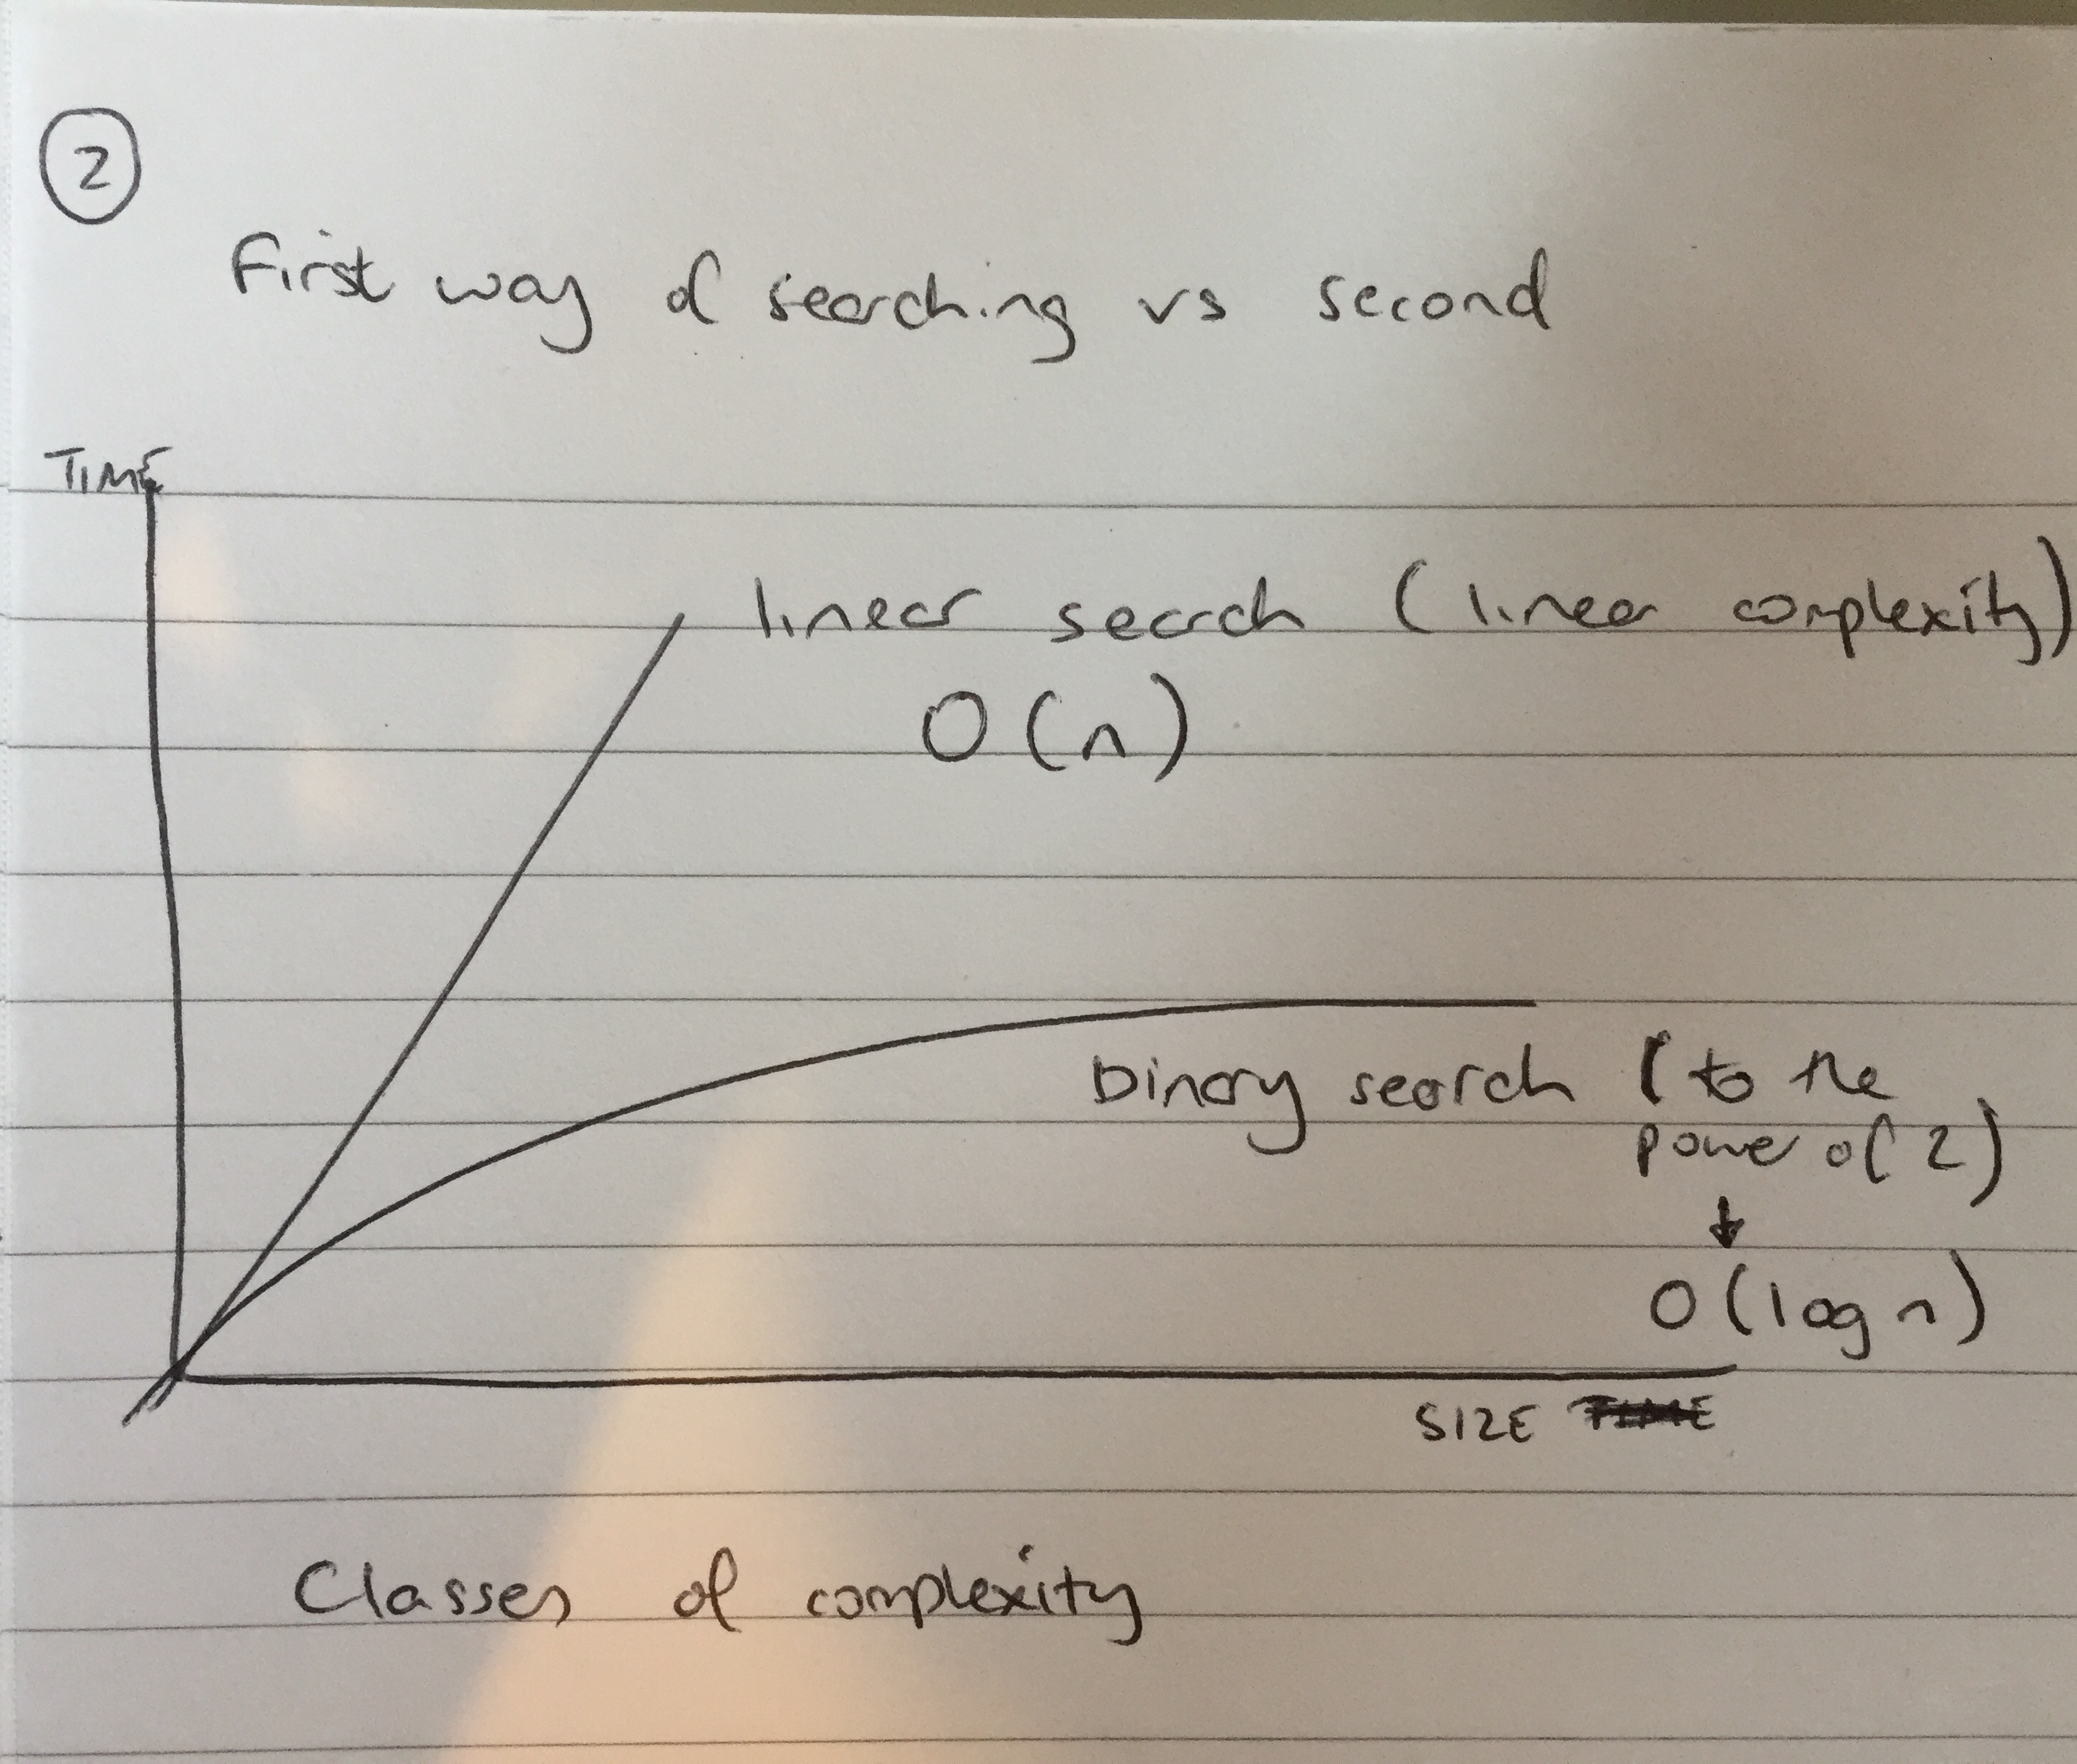 2
First way of searching vs second
TIME
linear search (linear complexity)
O(n)
binary search (to the
power of 2)
O(log n)
SIZE TIME
Classes of complexity